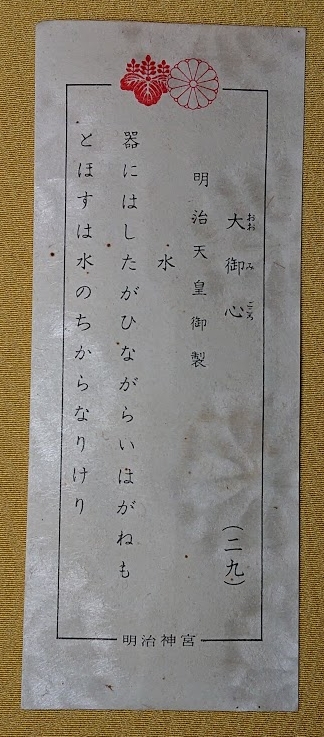 大御心
おおみごころ
(二九)
明治天皇御製
水
器にはしたがひながらいはがねも
とほすは水のちからなりけり
明治神宮